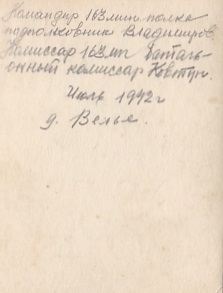 Командир 163 мин. полка
подполковник Владимиров.
Комиссар 163 мп баталь-
онный комиссар Ковтун.
Июль 1942 г
д. Велье.